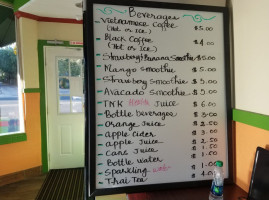 Beverages
Vietnamese Coffee $5.00
(Hot or Ice)
Black Coffee $4.00
(Hot or Ice)
Strawberry Banana Smoothie $5.00
Mango Smoothie $5.00
Strawberry Smoothie $5.00
Avocado Smoothie $5.00
TNK Juice $6.00
Bottle beverages $3.00
Orange Juice
apple Cider
apple Juice
Cans Juice
Bottle water
Sparkling
Thai Tea